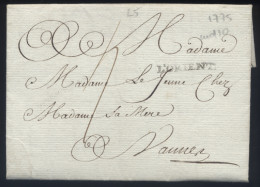 25
1775
Madame
L'ORIENT
Madame Le Jeune Chez
Madame Sa Mere
A Vannes